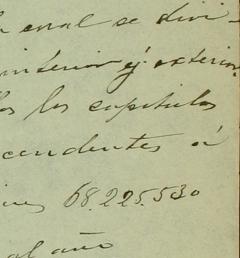 cual se divi-
interior y exterior
los capitulos
cendentes á
68.225.530
al año